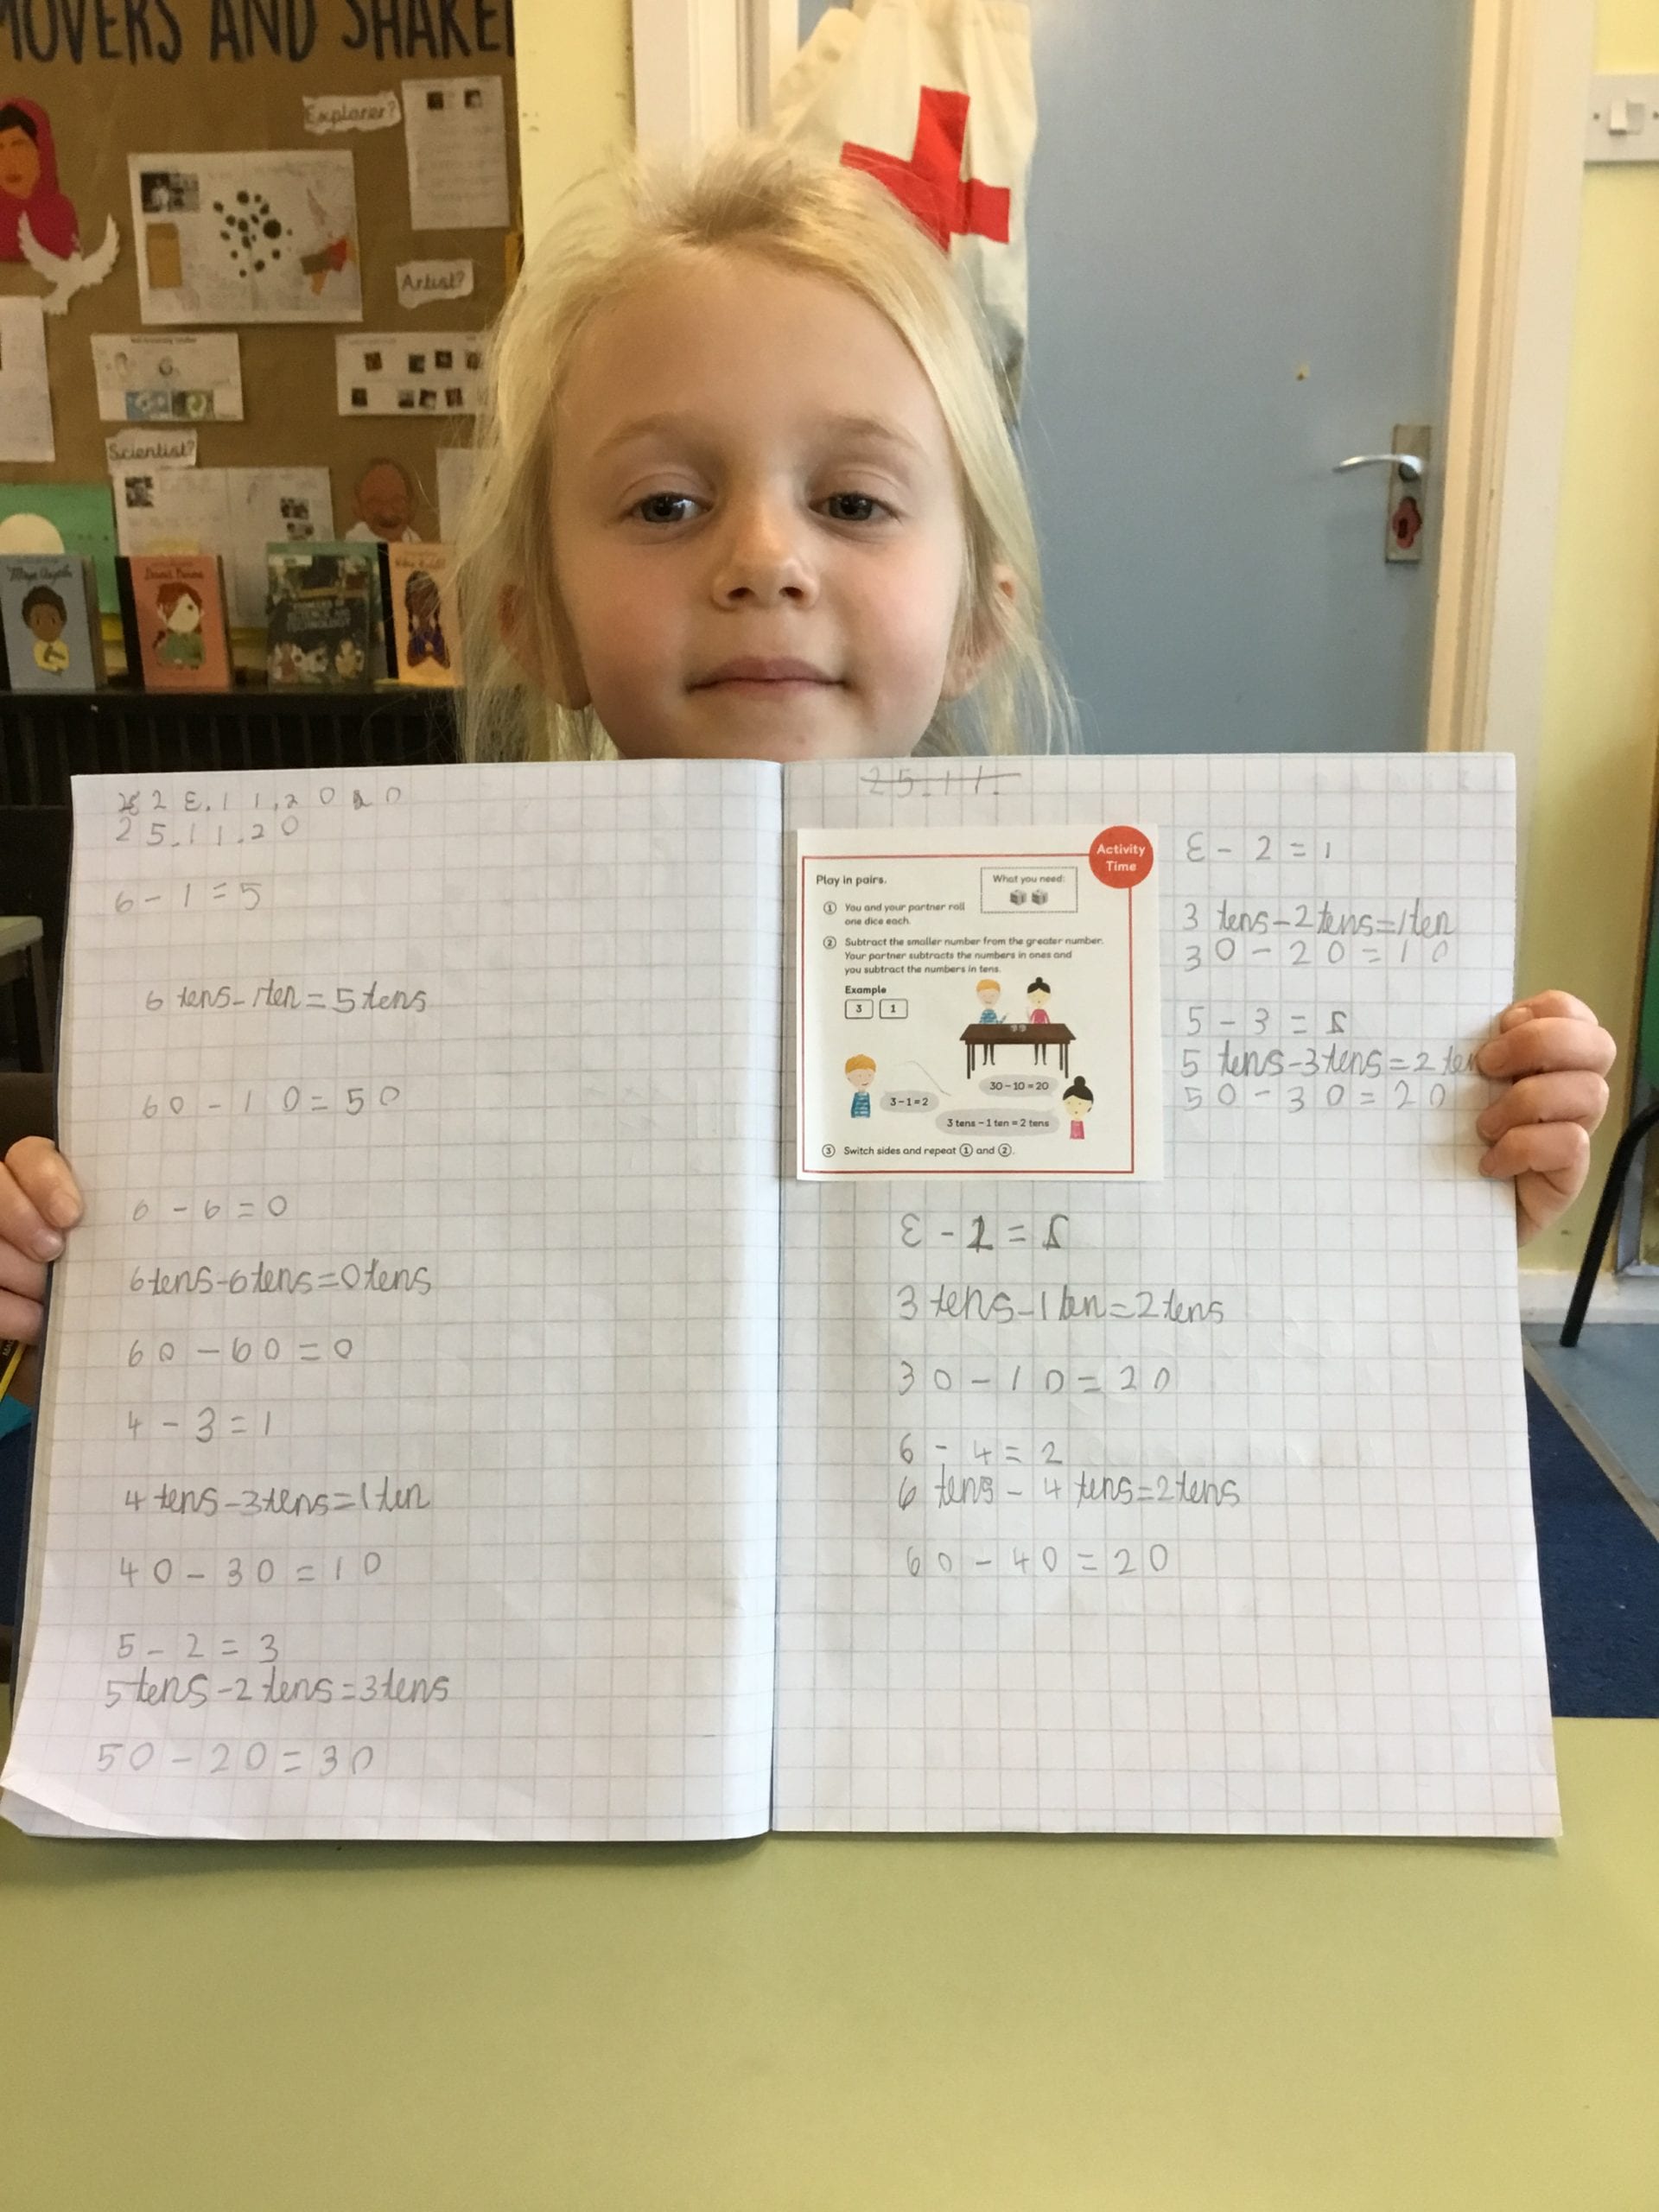 MOVERS AND SHAKE
Explorer?
Artist?
Scientist?
Maya Angelou
PIONEERS OF
SCIENCE AND
TECHNOLOGY
23.11.2020
25.11.20
6-1=5
6 tens-1ten=5tens
60-10=50
6-6=0
6tens-6tens=0tens
60-60=0
4-3=1
4tens-3tens=1ten
40-30=10
5-2=3
5tens-2tens=3tens
50-20=30
25.11.
Activity
Time
Play in pairs.
What you need:
1 You and your partner roll
one dice each.
2 Subtract the smaller number from the greater number.
Your partner subtracts the numbers in ones and
you subtract the numbers in tens.
Example
3 1
30-10=20
3-1=2
3 tens-1 ten=2 tens
3 Switch sides and repeat 1 and 2.
3-2=1
3 tens-2tens=1ten
30-20=10
5-3=2
5 tens-3tens=2 ten
50-30=20
3-1=2
3 tens-1ten=2tens
30-10=20
6-4=2
6 tens-4 tens=2tens
60-40=20